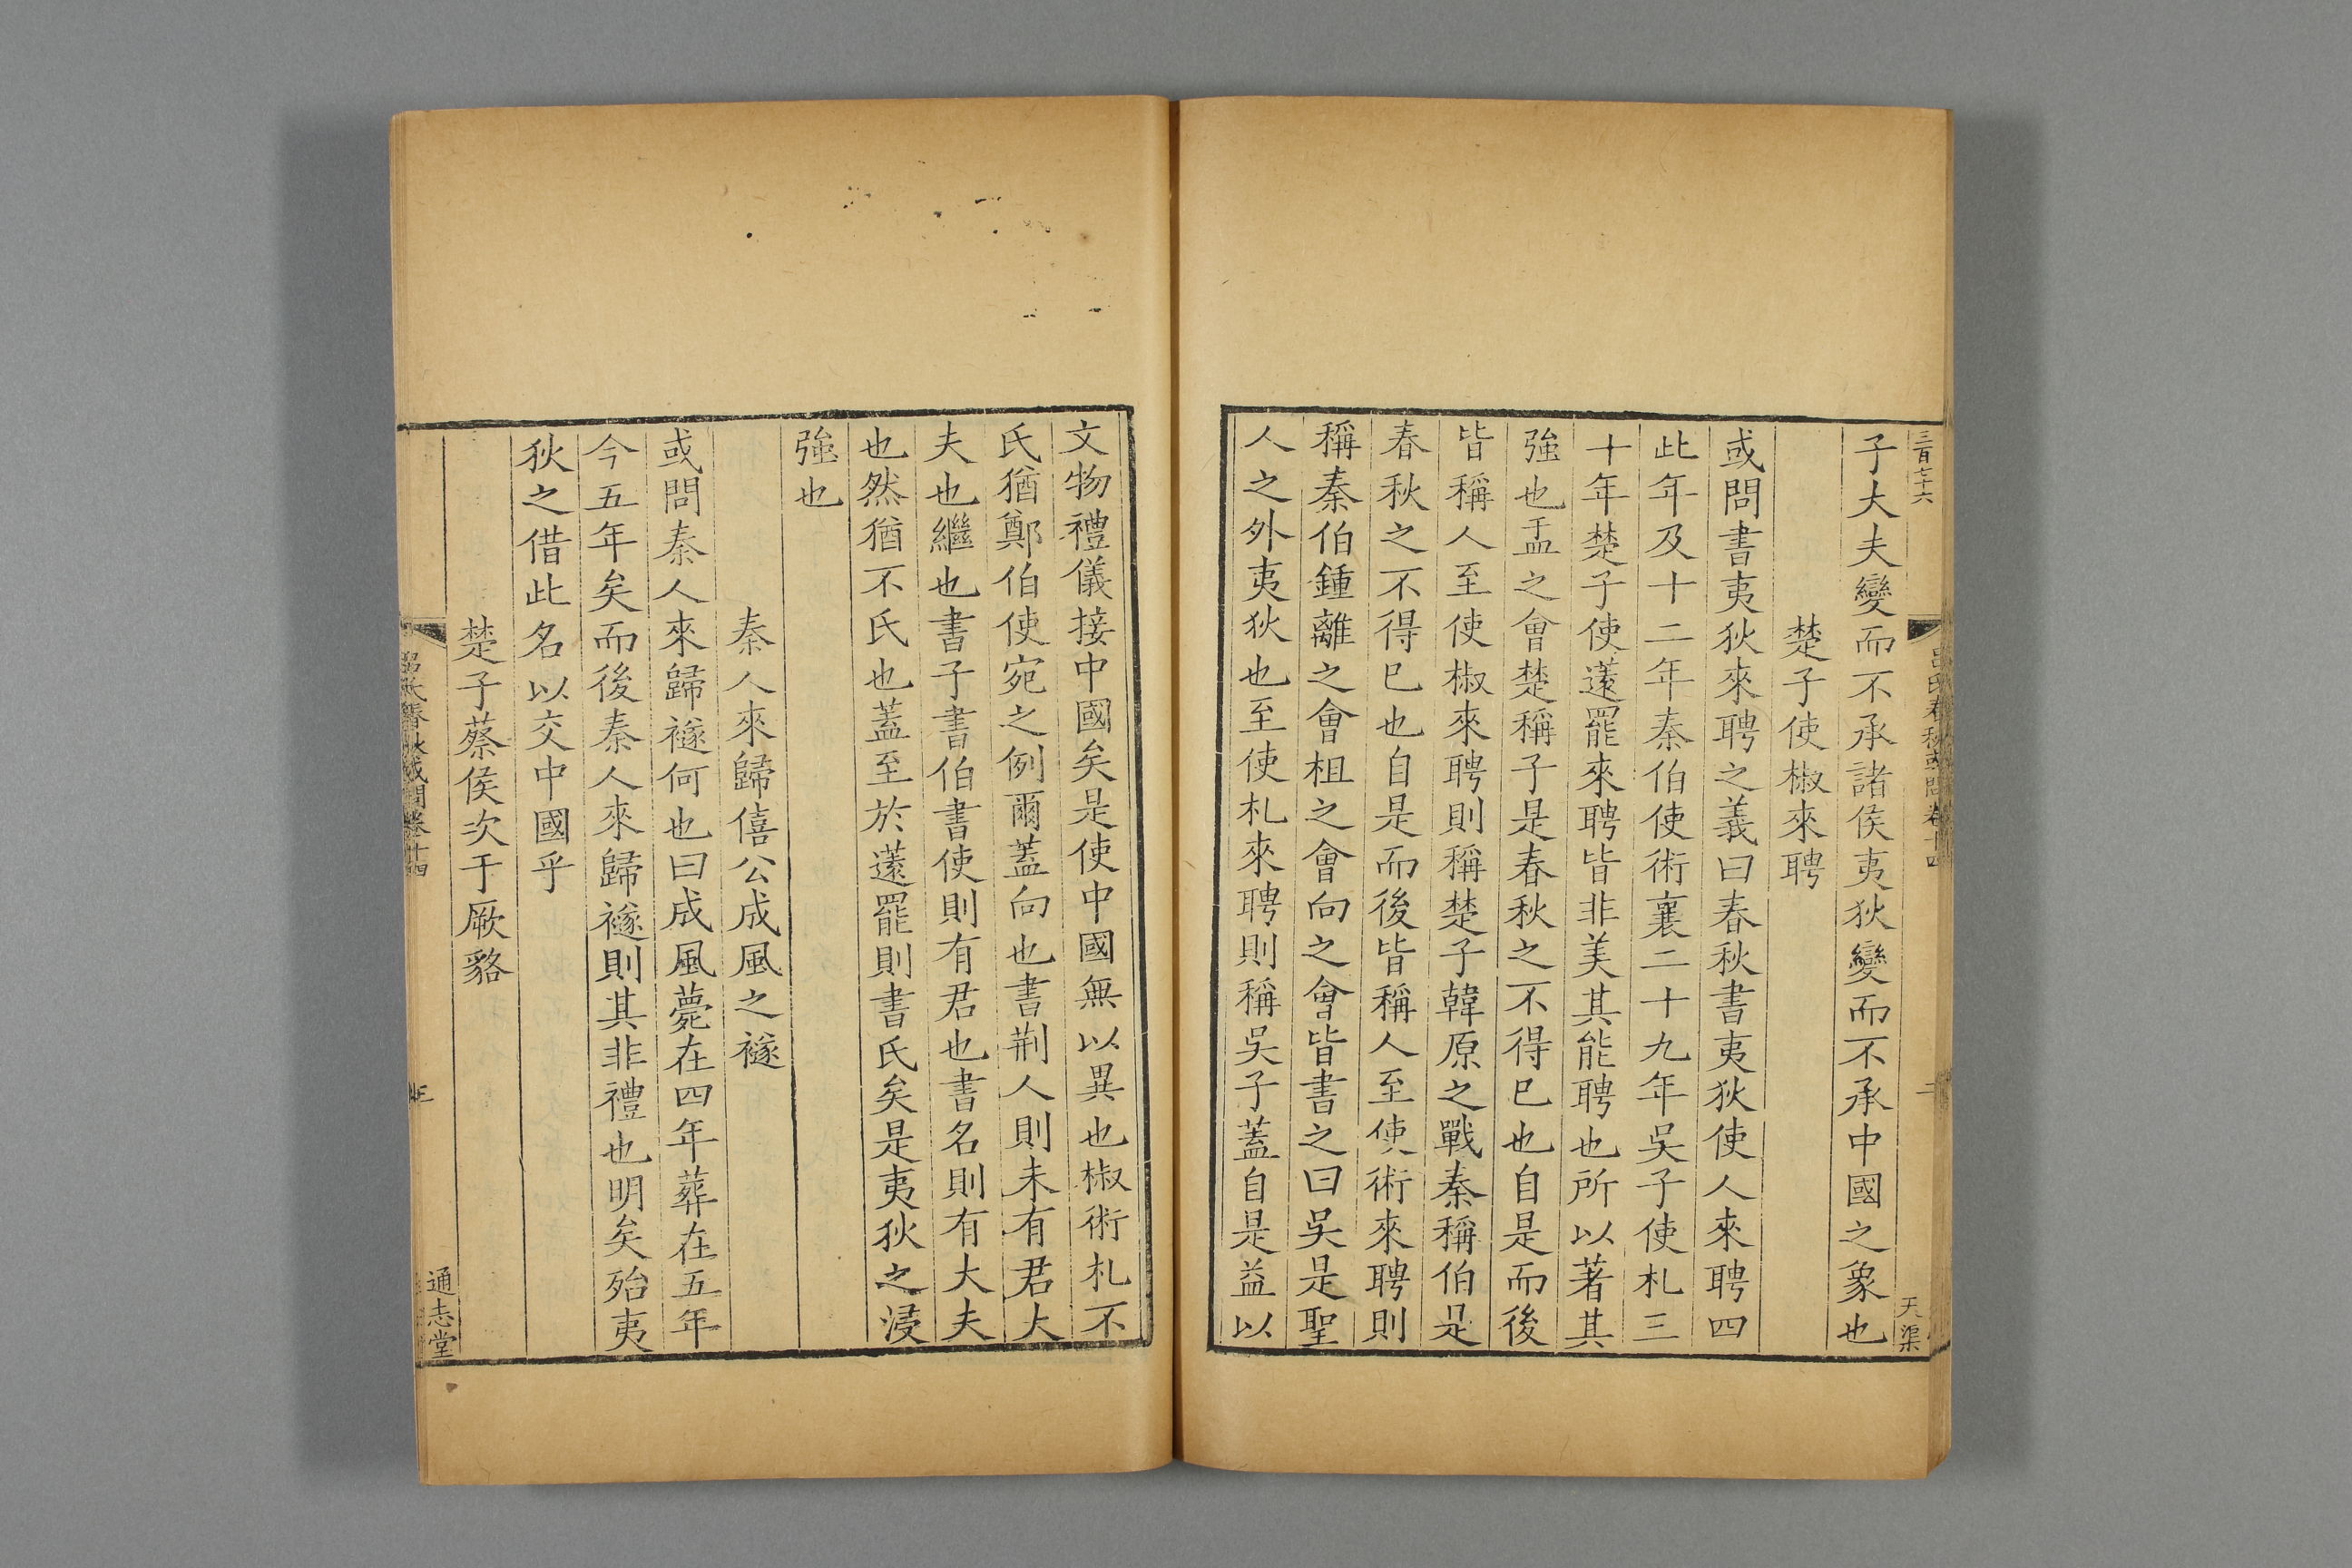 三百七十六
呂氏春秋或問卷十四
二
天渠
子大夫變而不承諸侯夷狄變而不承中國之象也
楚子使椒來聘
或問書夷狄來聘之義曰春秋書夷狄使人來聘四
此年及十二年秦伯使術襄二十九年吳子使札三
十年楚子使薳罷來聘皆非美其能聘也所以著其
強也盂之會楚稱子是春秋之不得已也自是而後
皆稱人至使椒來聘則稱楚子韓原之戰秦稱伯是
春秋之不得已也自是而後皆稱人至使術來聘則
稱秦伯鍾離之會柤之會向之會皆書之曰吳是聖
人之外夷狄也至使札來聘則稱吳子蓋自是益以
文物禮儀接中國矣是使中國無以異也椒術札不
氏猶鄭伯使宛之例爾蓋向也書荆人則未有君大
夫也繼也書子書伯書使則有君也書名則有大夫
也然猶不氏也蓋至於薳罷則書氏矣是夷狄之浸
強也
秦人來歸僖公成風之襚
或問秦人來歸襚何也曰成風薨在四年葬在五年
今五年矣而後秦人來歸襚則其非禮也明矣殆夷
狄之借此名以交中國乎
楚子蔡侯次于厥貉
呂氏春秋或問卷十四
通志堂